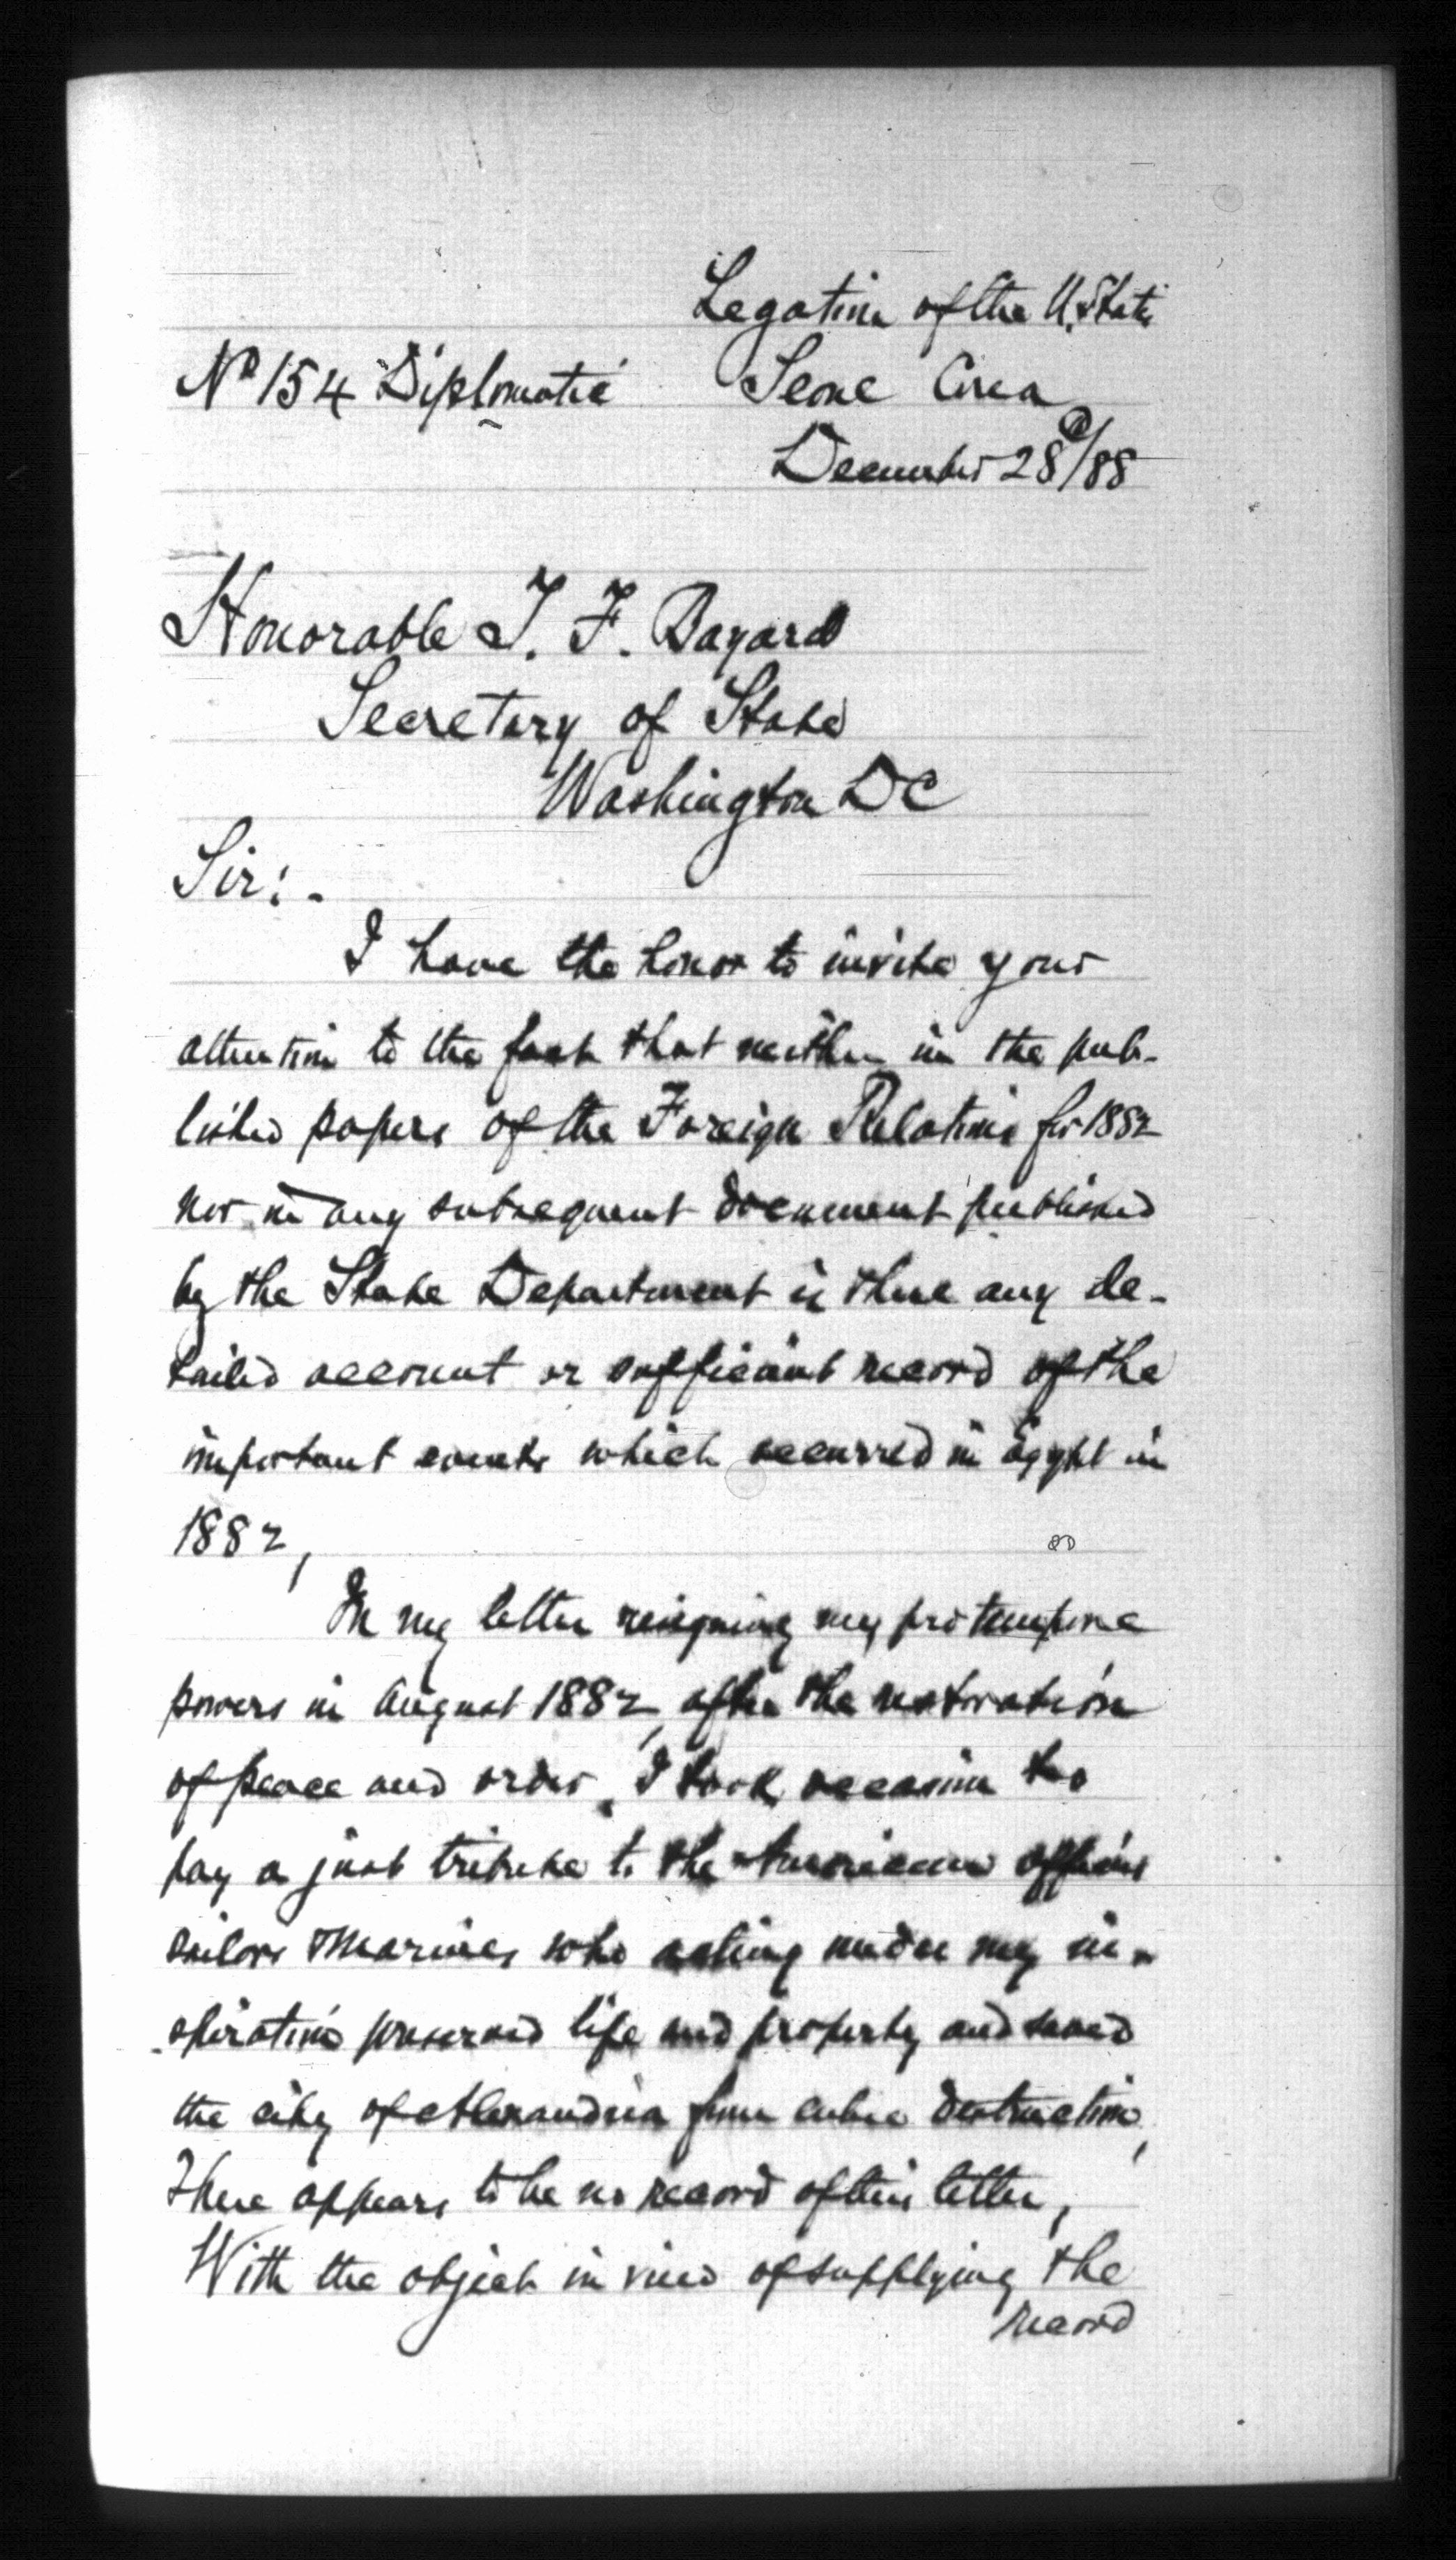 Legation of the U. States
No 154 Diplomatic Seoul Corea
December 28/88
Honorable T. F. Bayard
Secretary of State
Washington DC
Sir:-
I have the honor to invite your
attention to the fact that neither in the pub-
lished papers of the Foreign Relations for 1882
nor in any subsequent document published
by the State Department is there any de-
tailed account or sufficient record of the
important events which occurred in Egypt in
1882,
In my letter resigning my pro tempore
powers in August 1882, after the restoration
of peace and order, I took occasion to
pay a just tribute to the American officers
sailors & Marines who acting under my in-
spiration preserved life and property and saved
the city of Alexandria from entire destruction,
There appears to be no record of this letter,
With the object in view of supplying the
record